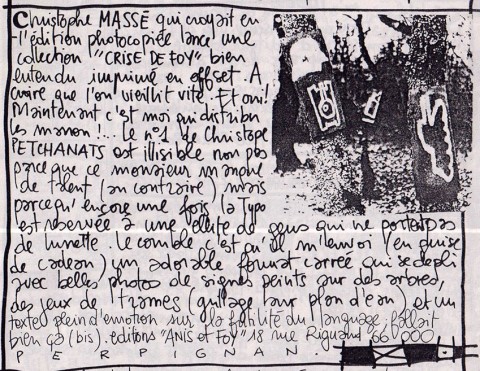 Christophe MASSÉ qui croyait en
l'édition photocopiée lance une
collection "CRISE DE FOY" bien
entendu imprimé en offset. A
croire que l'on vieillit vite. Et oui!
Maintenant c'est moi qui distribu
les manon!... le n°1 de Christophe
PETCHANATS est illisible non pas
parce que ce monsieur manque
de talent (au contraire) mais
parce qu'encore une fois, la Typo
est reservée à une élite de gens qui ne portent pas
de lunette. Le comble c'est qu'il m'envoi (en guise
de cadeau) un adorable format carré qui se dépli
avec belles photos de signes peints sur des arbres,
des jeux de trames (grillage sur plan d'eau) et un
texte plein d'emotion sur la futilité du language, fallait
bien ça (bis). editions "ANIS et FOY" 18 rue Rigaud 66000
PERPIGNAN.